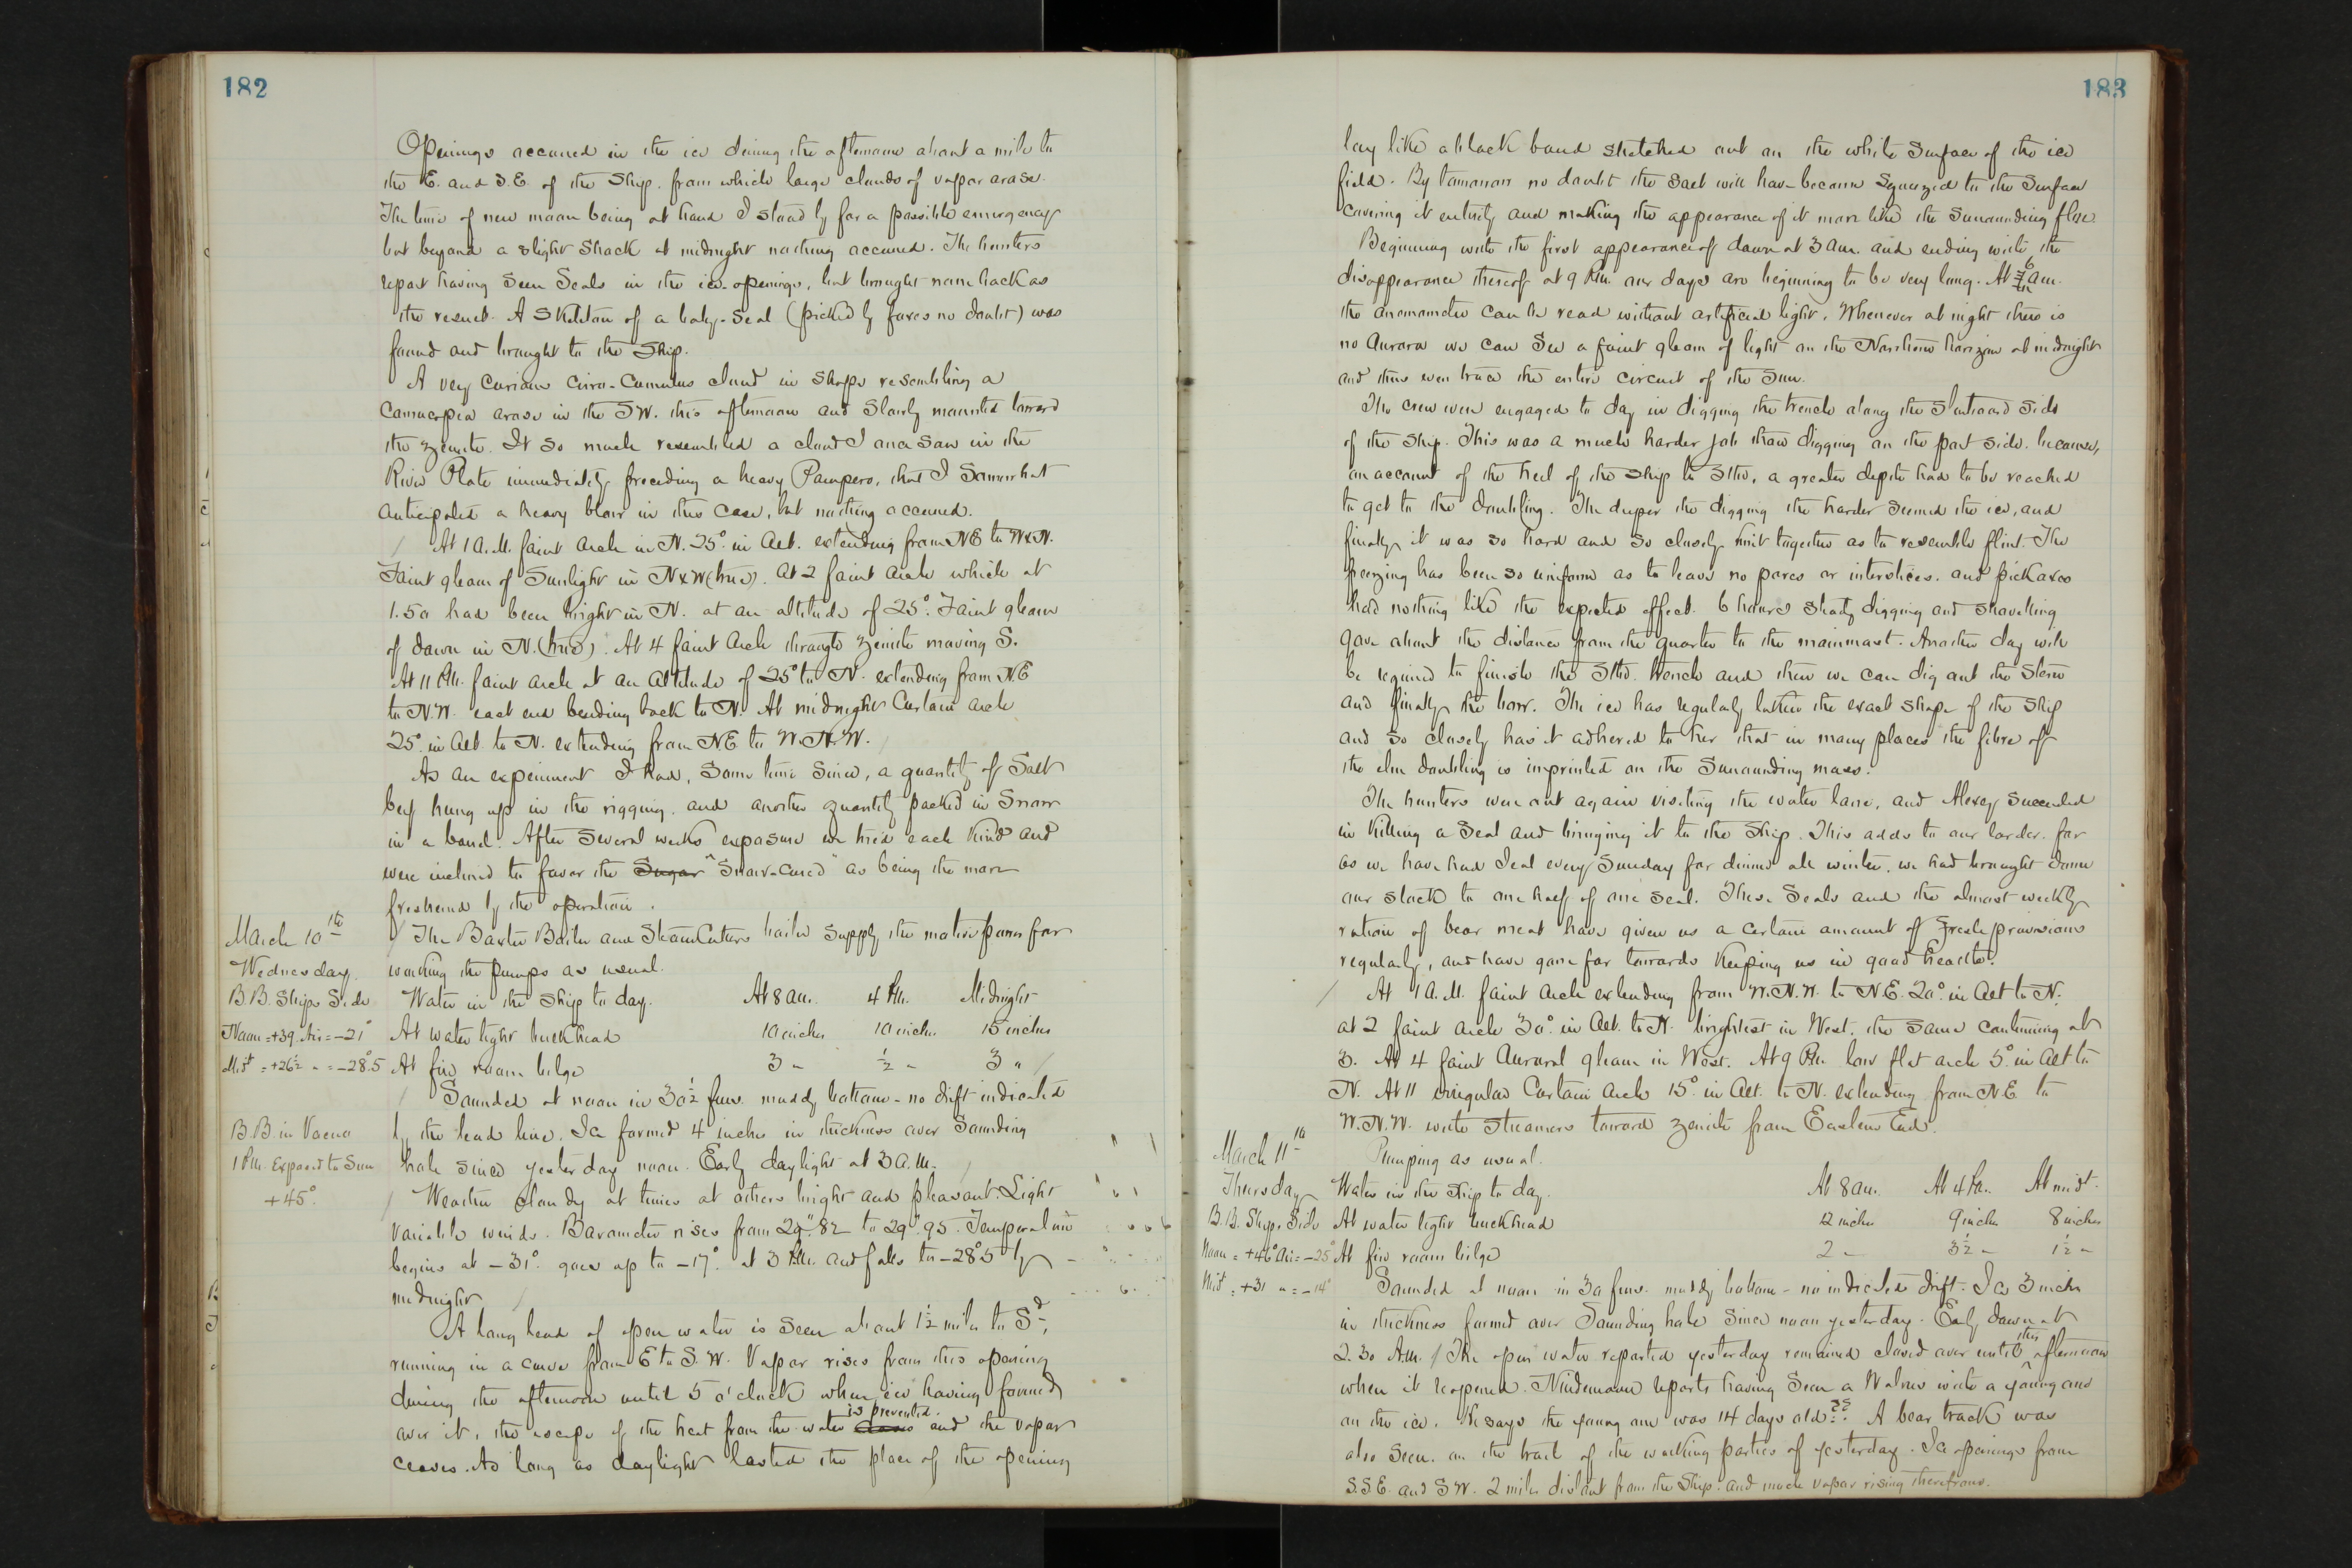 182
Openings occurred in the ice during the afternoon about a mile to
the E. and S.E. of the Ship. from which large clouds of vapor arose.
The time of new moon being at hand I stood by for a possible emergency
but beyond a slight shock at midnight nothing occurred. The hunters
report having seen Seals in the ice-openings, but brought none back as
the result. A Skeleton of a baby-seal (picked by foxes no doubt) was
found and brought to the Ship.
A very curious Cirro-Cumulus cloud in shape resembling a
Cornucopia arose in the SW. this afternoon and slowly mounted toward
the zenith. It so much resembled a cloud I once saw in the
River Plate immediately preceding a heavy Pampero, that I somewhat
anticipated a heavy blow in this case, but nothing occurred.
At 1 A.M. faint arch in N. 25° in Alt. extending from NE to WxN.
Faint gleam of Sunlight in NxW (true). At 2 faint arch which at
1.50 had been bright in N. at an altitude of 25°. Faint gleam
of dawn in N. (true). At 4 faint Arch through zenith moving S.
At 11 P.M. faint arch at an altitude of 25° to N. extending from N.E
to N.W. each end bending back to N. At midnight Curtain arch
25° in Alt. to N. extending from NE to W.N.W.
As an experiment I had, some time since, a quantity of Salt
beef hung up in the rigging. and another quantity packed in Snow
in a barrel. After several weeks exposure we tried each kind and
were inclined to favor the Sugar "Snow-cured" as being the more
freshened by the operation.
March 10th
Wednesday.
B.B. Ships Side
Noon = +39. Air = -21°
Midt = +26½ " = -28°.5
The Baxter Boiler and Steam Cutters boiler supply the motive power for
working the pumps as usual.
Water in the Ship to day. At 8 am. 4 P.M. Midnight
At water tight bulkhead 10 inches 10 inches 15 inches
At fire room bilge 3 " ½ " 3 "
Sounded at noon in 30½ fms. muddy bottom - no drift indicated
B.B. in Vacuo
1 P.M. Exposed to Sun
+45°.
by the lead line. Ice formed 4 inches in thickness over Sounding
hole since yesterday noon. Early daylight at 3 A.M.
Weather cloudy at times at others bright and pleasant. Light
variable winds. Barometer rises from 29".82 to 29".95. Temperature
begins at -31°. goes up to -17°. at 3 P.M. and falls to -28°5 by
midnight
A long lead of open water is seen about 1½ miles to Sd,
running in a curve from E to S.W. Vapor rises from this opening
during the afternoon until 5 o'clock when, ice having formed
over it, the escape of the heat from the water is prevented. and the vapor
ceases. As long as daylight lasted the place of the opening
183
lay like a black band stretched out on the white surface of the ice
field. By tomorrow no doubt the salt will have become squeezed to the surface
covering it entirely and making the appearance of it more like the surrounding floe.
Beginning with the first appearance of dawn at 3 am. and ending with the
disappearance thereof at 9 P.M. our days are beginning to be very long. At 6 am.
the anemometer can be read without artificial light. Whenever at night there is
no Aurora we can see a faint gleam of light on the Northern horizon at midnight
and thus even trace the entire circuit of the Sun.
The crew were engaged to day in digging the trench along the Starboard side
of the Ship. This was a much harder job than digging on the port side. because,
on account of the heel of the Ship to Stbd, a greater depth had to be reached
to get to the doubling. The deeper the digging the harder seemed the ice, and
finally it was so hard and so closely knit together as to resemble flint. The
freezing has been so uniform as to leave no pores or interstices. and pickaxes
had nothing like the expected effect. 6 hours steady digging and shovelling
gave about the distance from the quarter to the mainmast. Another day will
be required to finish the Stbd. trench and then we can dig out the stern
and finally the bow. The ice has regularly taken the exact shape of the Ship
and so closely has it adhered to her that in many places the fibre of
the elm doubling is imprinted on the Surrounding mass.
The hunters were out again visiting the water lane, and Alexey succeeded
in killing a Seal and bringing it to the Ship. This adds to our larder. for
as we have had Seal every Sunday for dinner all winter, we had brought down
our stock to one half of one seal. These Seals and the almost weekly
ration of bear meat have given us a certain amount of fresh provisions
regularly, and have gone far towards keeping us in good health.
At 1 A.M. faint arch extending from W.N.W. to N.E. 20° in Alt to N.
at 2 faint arch 30° in Alt. to N. brightest in West. the same continuing at
3. At 4 faint Auroral gleam in West. At 9 P.M. low flat arch 5° in Alt to
N. At 11 irregular Curtain Arch 15° in Alt. to N. extending from N.E. to
W.N.W. with streamers toward zenith from Eastern End.
March 11th
Thursday
B.B. Ships Side
Noon = +46° Air = -25°
Midt = +31 " = -14°
Pumping as usual.
Water in the Ship to day. At 8 am. At 4 P.M. At midt.
At water tight bulkhead 12 inches 9 inches 8 inches
At fire room bilge 2 " 3½ " 1½ "
Sounded at noon in 30 fms. muddy bottom - no indicated drift. Ice 3 inches
in thickness formed over Sounding hole since noon yesterday. Early dawn at
2.30 A.M. The open water reported yesterday remained closed over until this afternoon
when it reopened. Nindemann reports having seen a Walrus with a young one
on the ice. He says the young one was 14 days old?? A bear track was
also seen. on the trail of the working parties of yesterday. Ice openings from
S.S.E. and SW. 2 miles distant from the Ship. and much vapor rising therefrom.